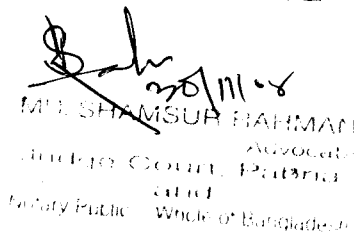 30/11/08
MD. SHAMSUR RAHMAN
Advocate
Judge Court, Pabna
and
Notary Public Whole of Bangladesh